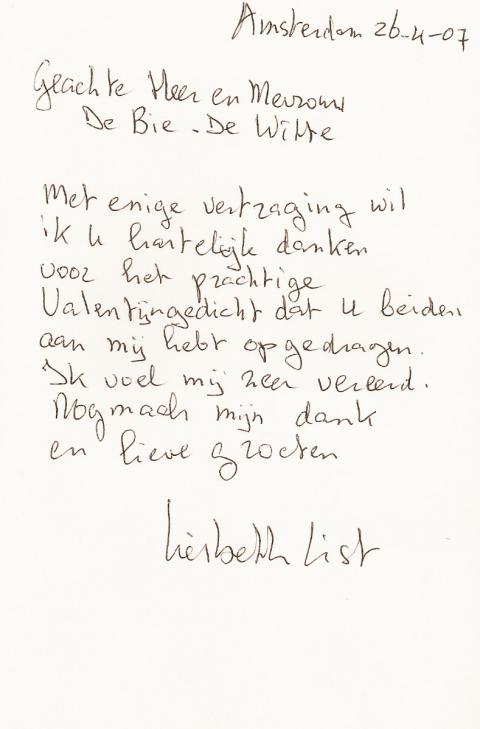 Amsterdam 26-4-07
Geachte Heer en Mevrouw
De Bie - De Witte
Met enige vertraging wil
ik U hartelijk danken
voor het prachtige
Valentijngedicht dat U beiden
aan mij hebt opgedragen.
Ik voel mij zeer vereerd.
Nogmaals mijn dank
en lieve groeten
Liesbeth List